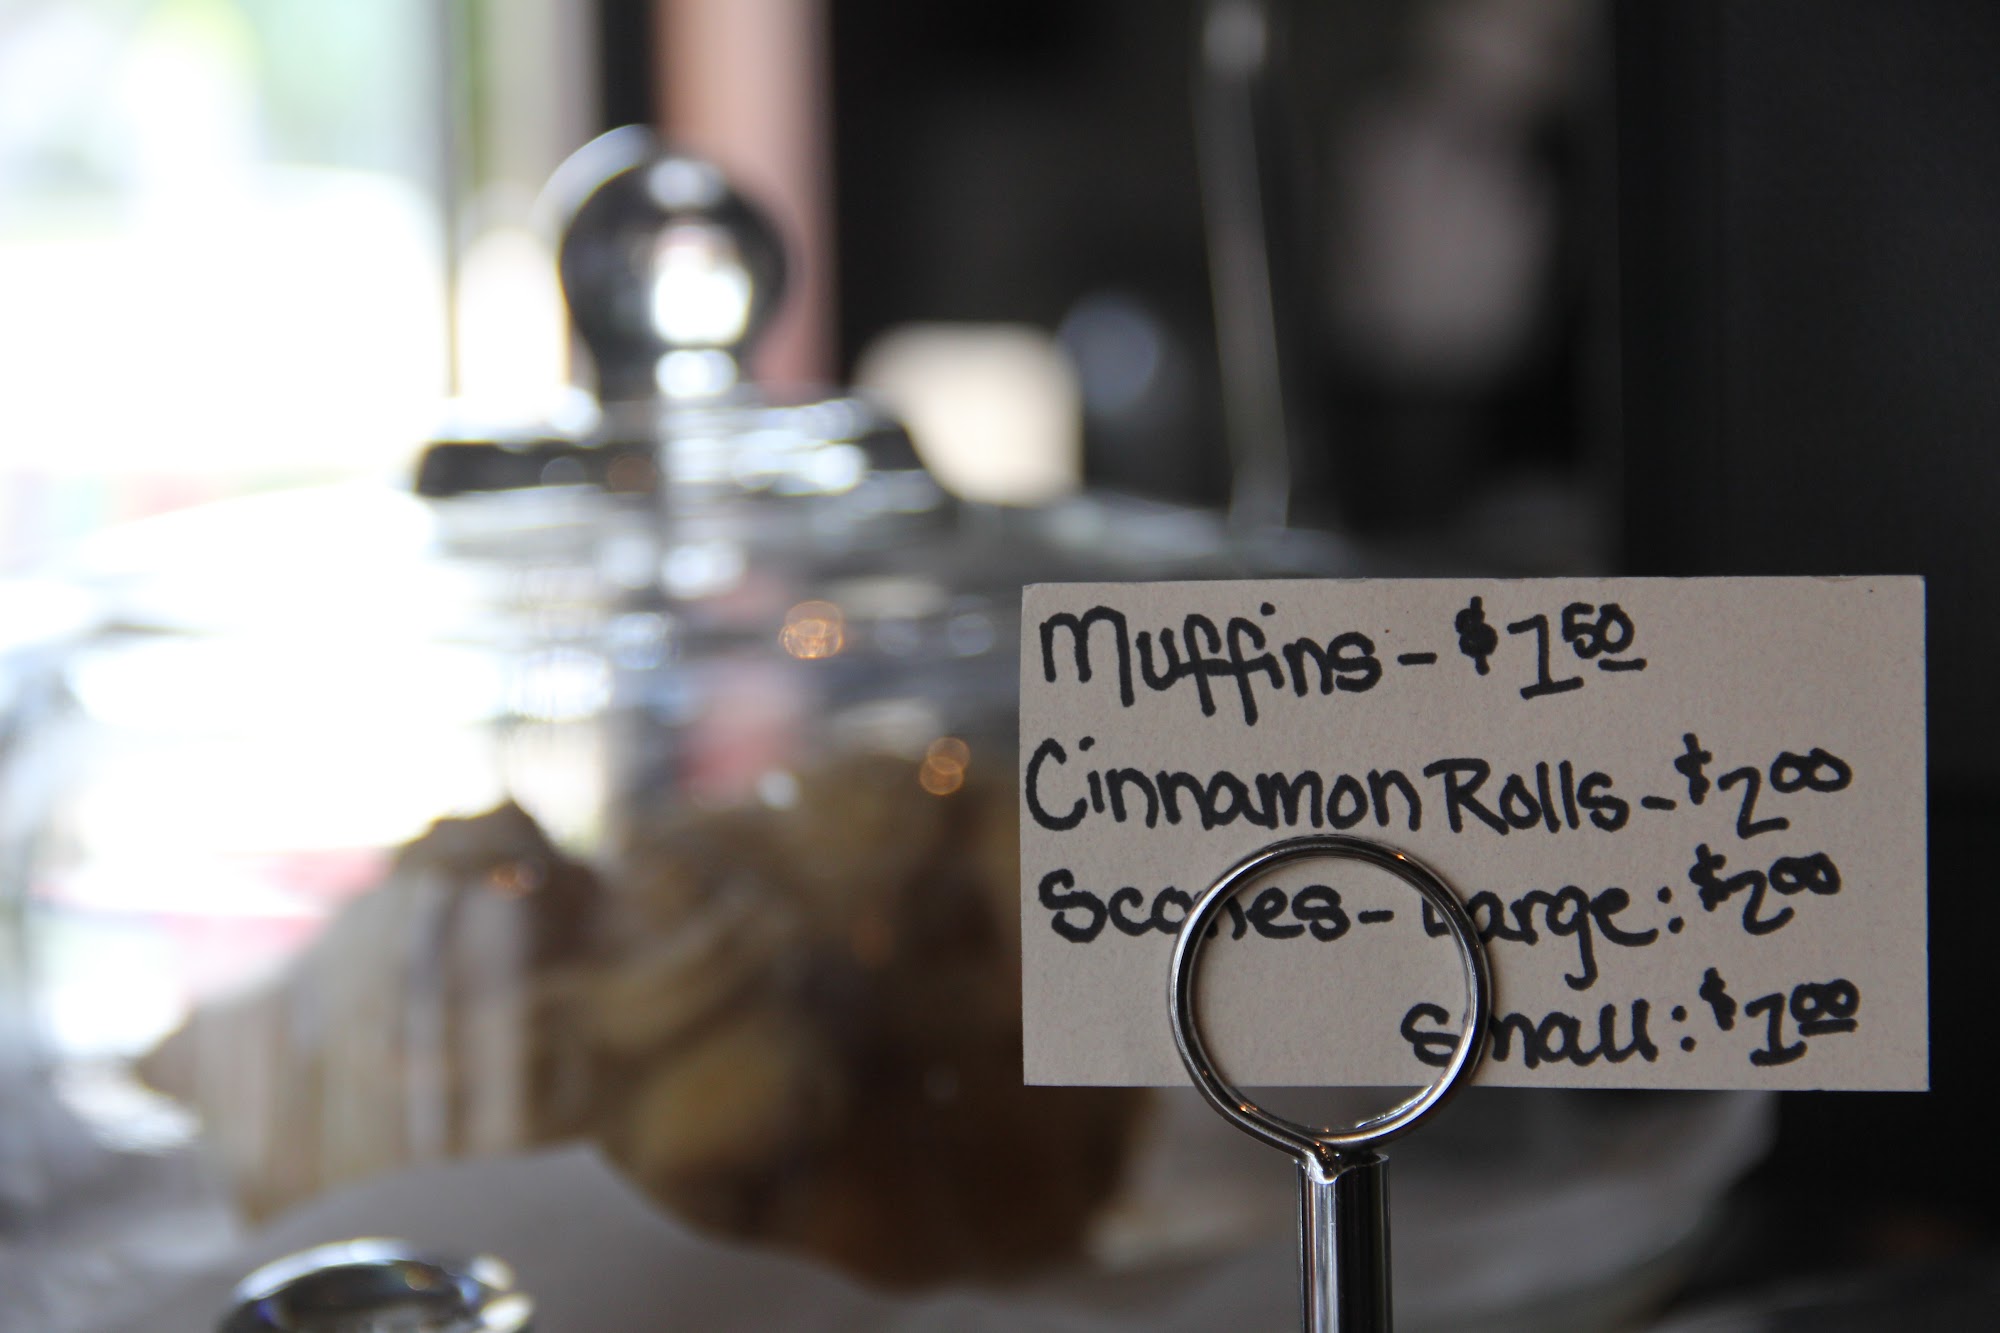 Muffins - $1.50
Cinnamon Rolls - $2.00
Scones - Large: $2.00
Small: $1.00